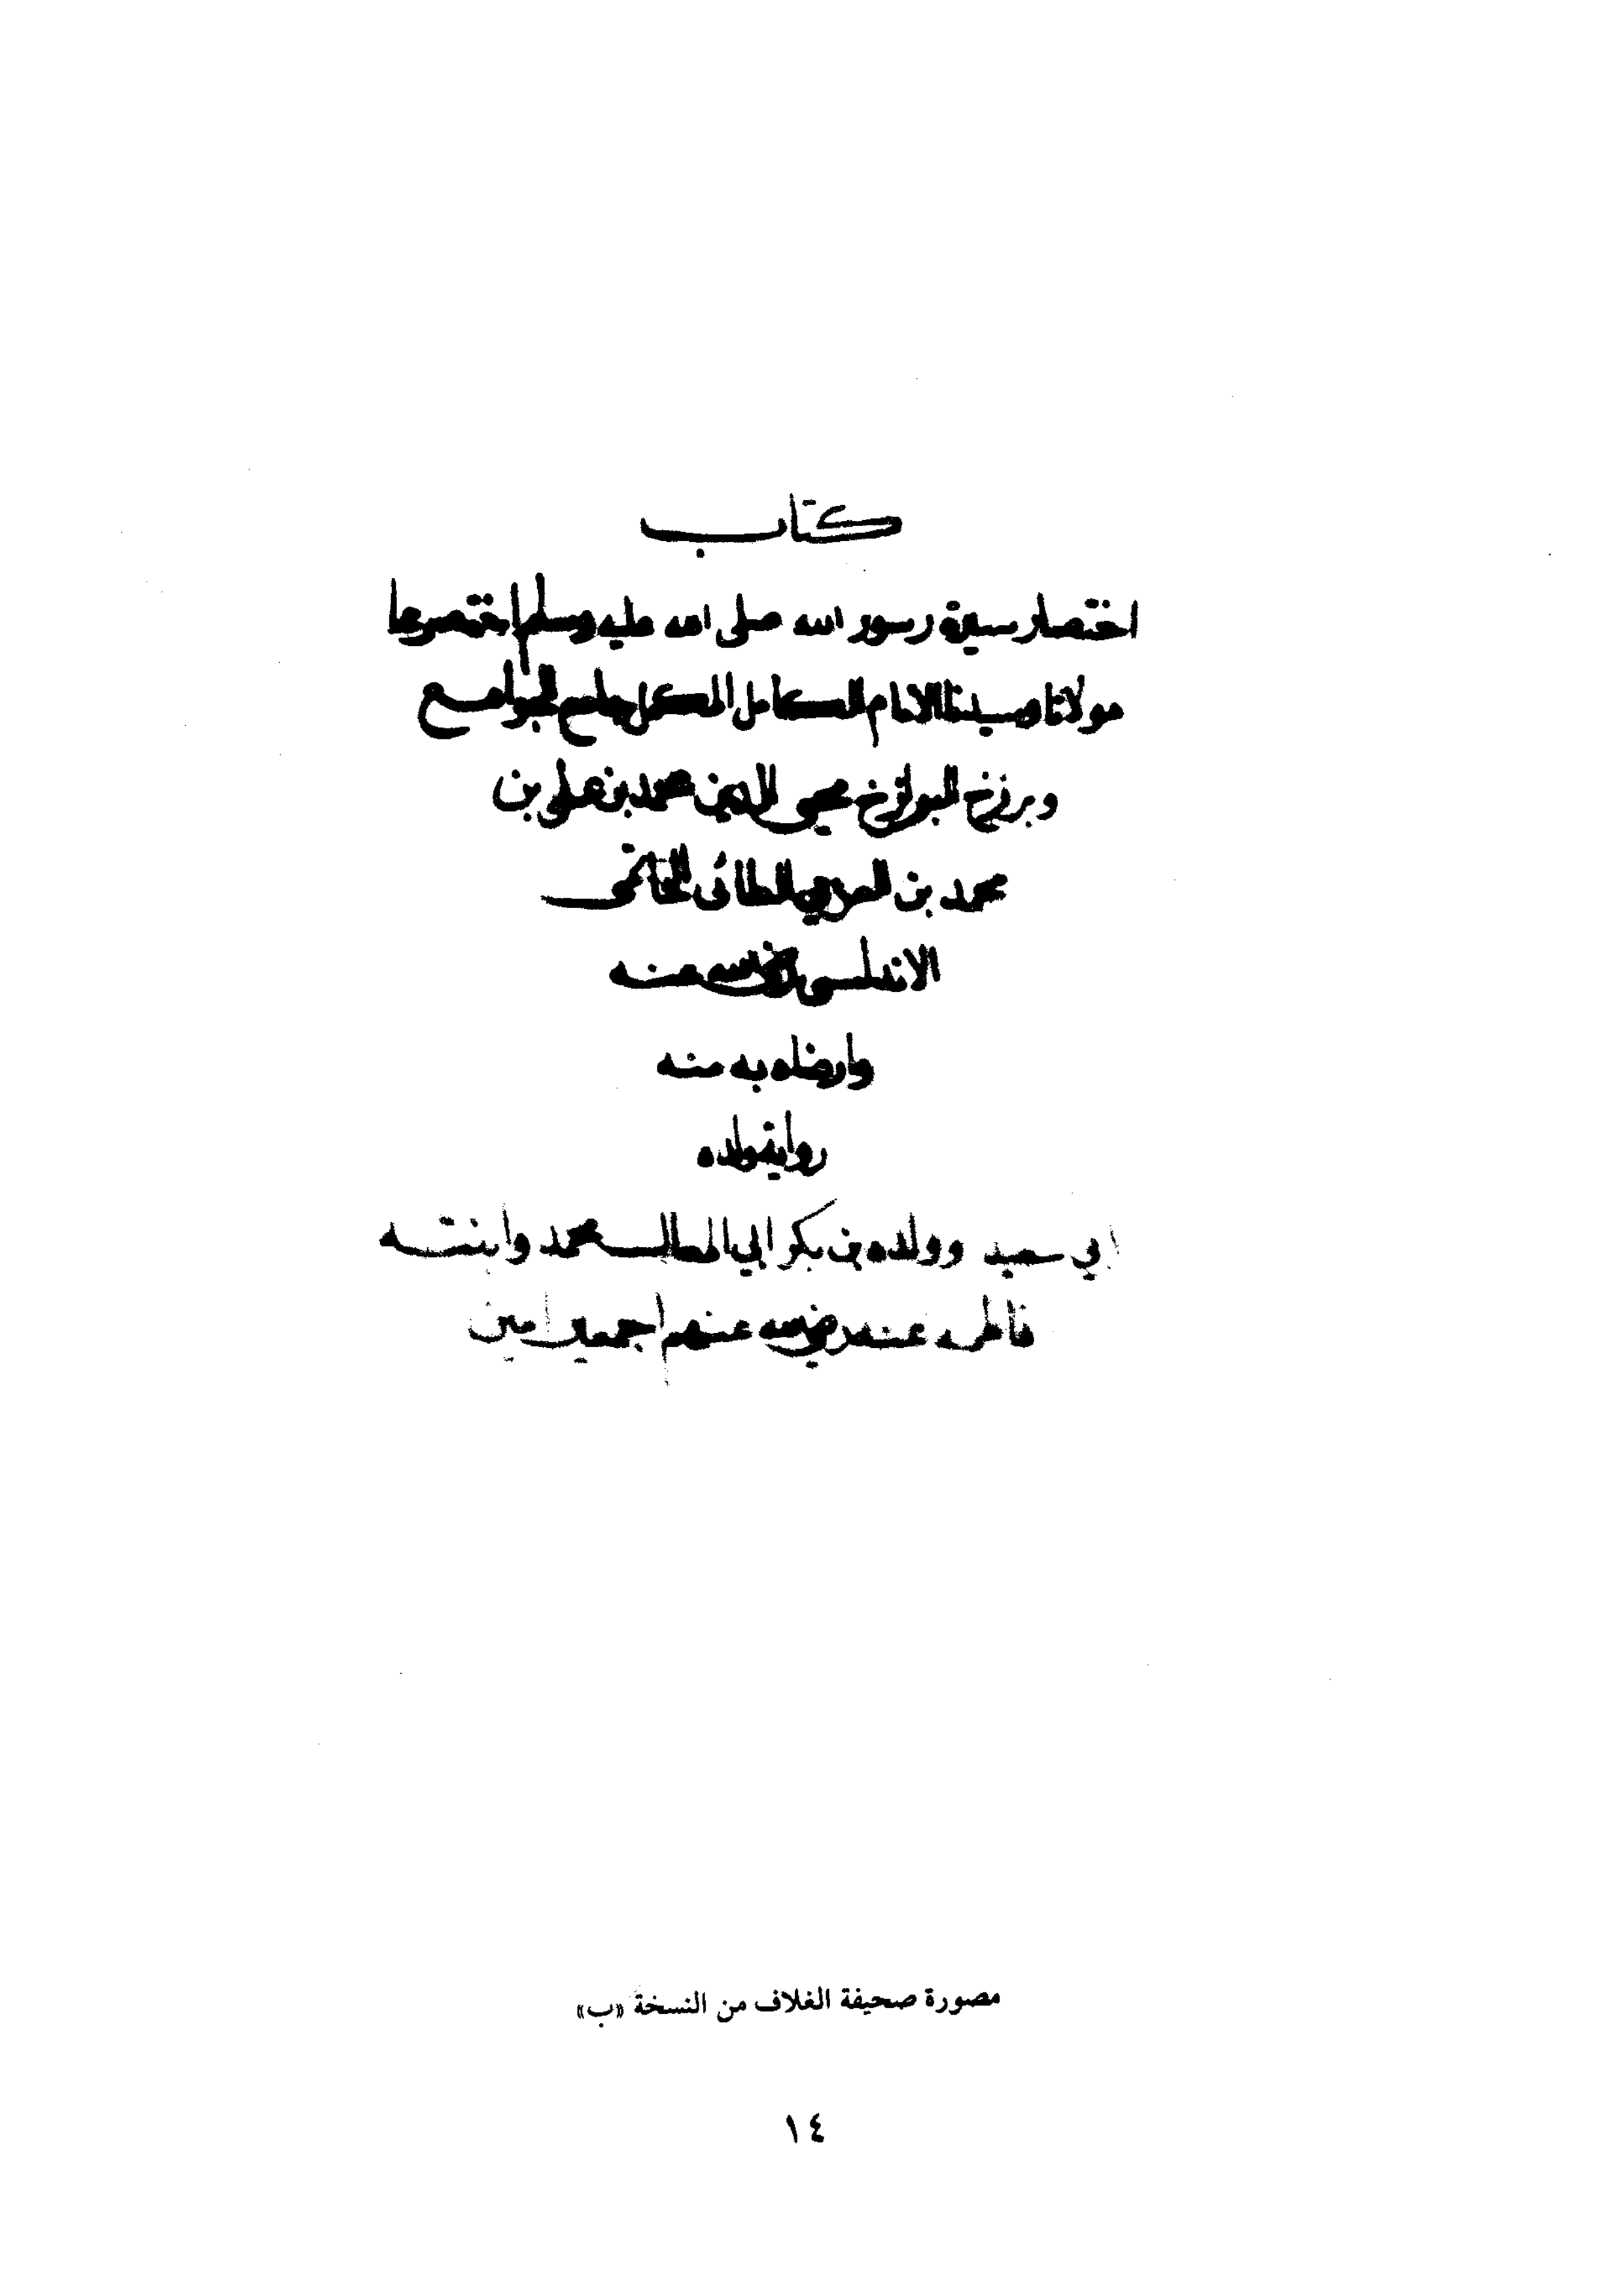 كتاب
اختصار سيرة رسول الله صلى الله عليه وسلم اختصرها
مولانا وسيدنا الامام الكامل المكمل جامع الجوامع
وبرزخ البرازخ محيي الدين محمد بن علي بن
محمد بن العربي الطائي الحاتمى
الاندلسي رضي الله عنه
وارضاه به منه
رواية ولده
ابي سعيد وولده بن بكر ابي المعالي محمد وابنته
فاطمه عنه رضي الله عنهم اجمعين امين
مصورة صحيفة الغلاف من النسخة «ب»
١٤